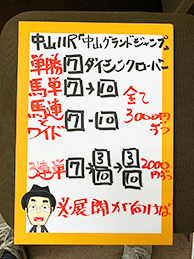 中山11R「中山グランドジャンプ」
単勝 7 ダイシンクローバー
馬単 7→10 全て
馬連 3000円
ワイド 7-10 ずつ
3連単 7→3/10→3/10 2000円ずつ
※展開が向けば